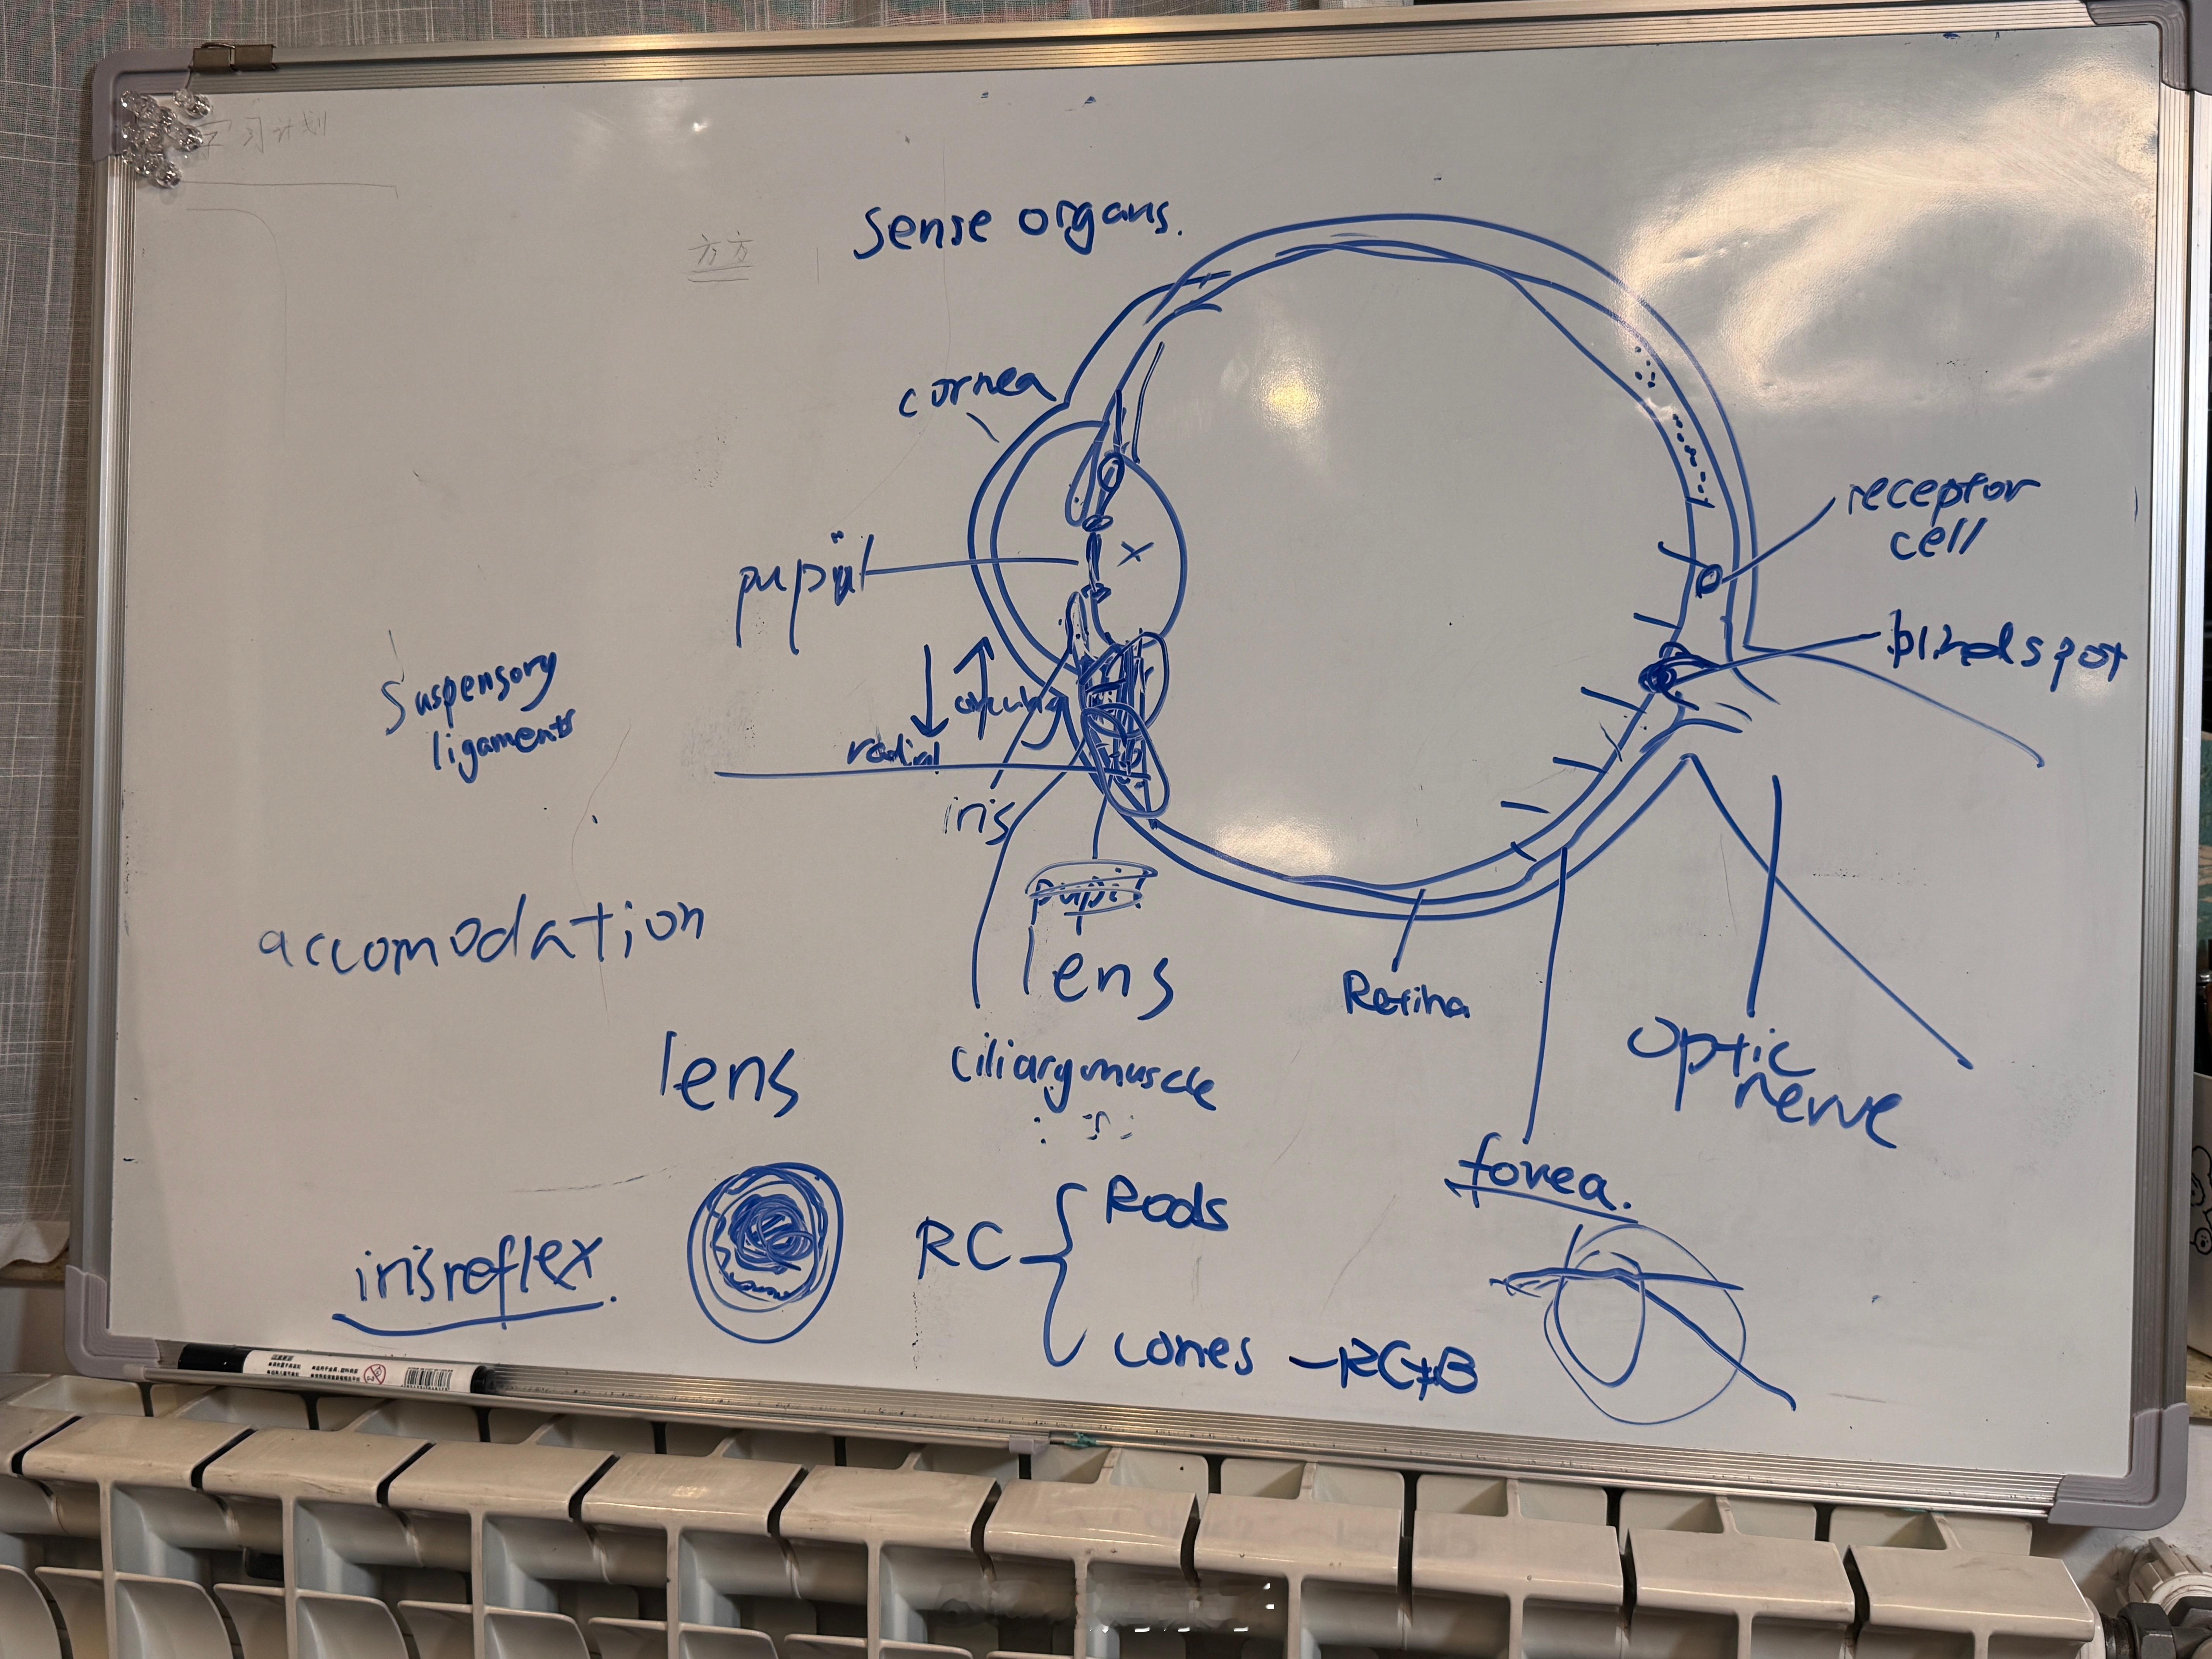 学习计划
方方
Sense organs.
cornea
receptor
cell
pupil
blind spot
Suspensory
ligaments
circular
radial
iris
pupil
lens
accomodation
Retina
optic
nerve
lens
ciliary muscle
fovea.
iris reflex.
RC
Rods
cones